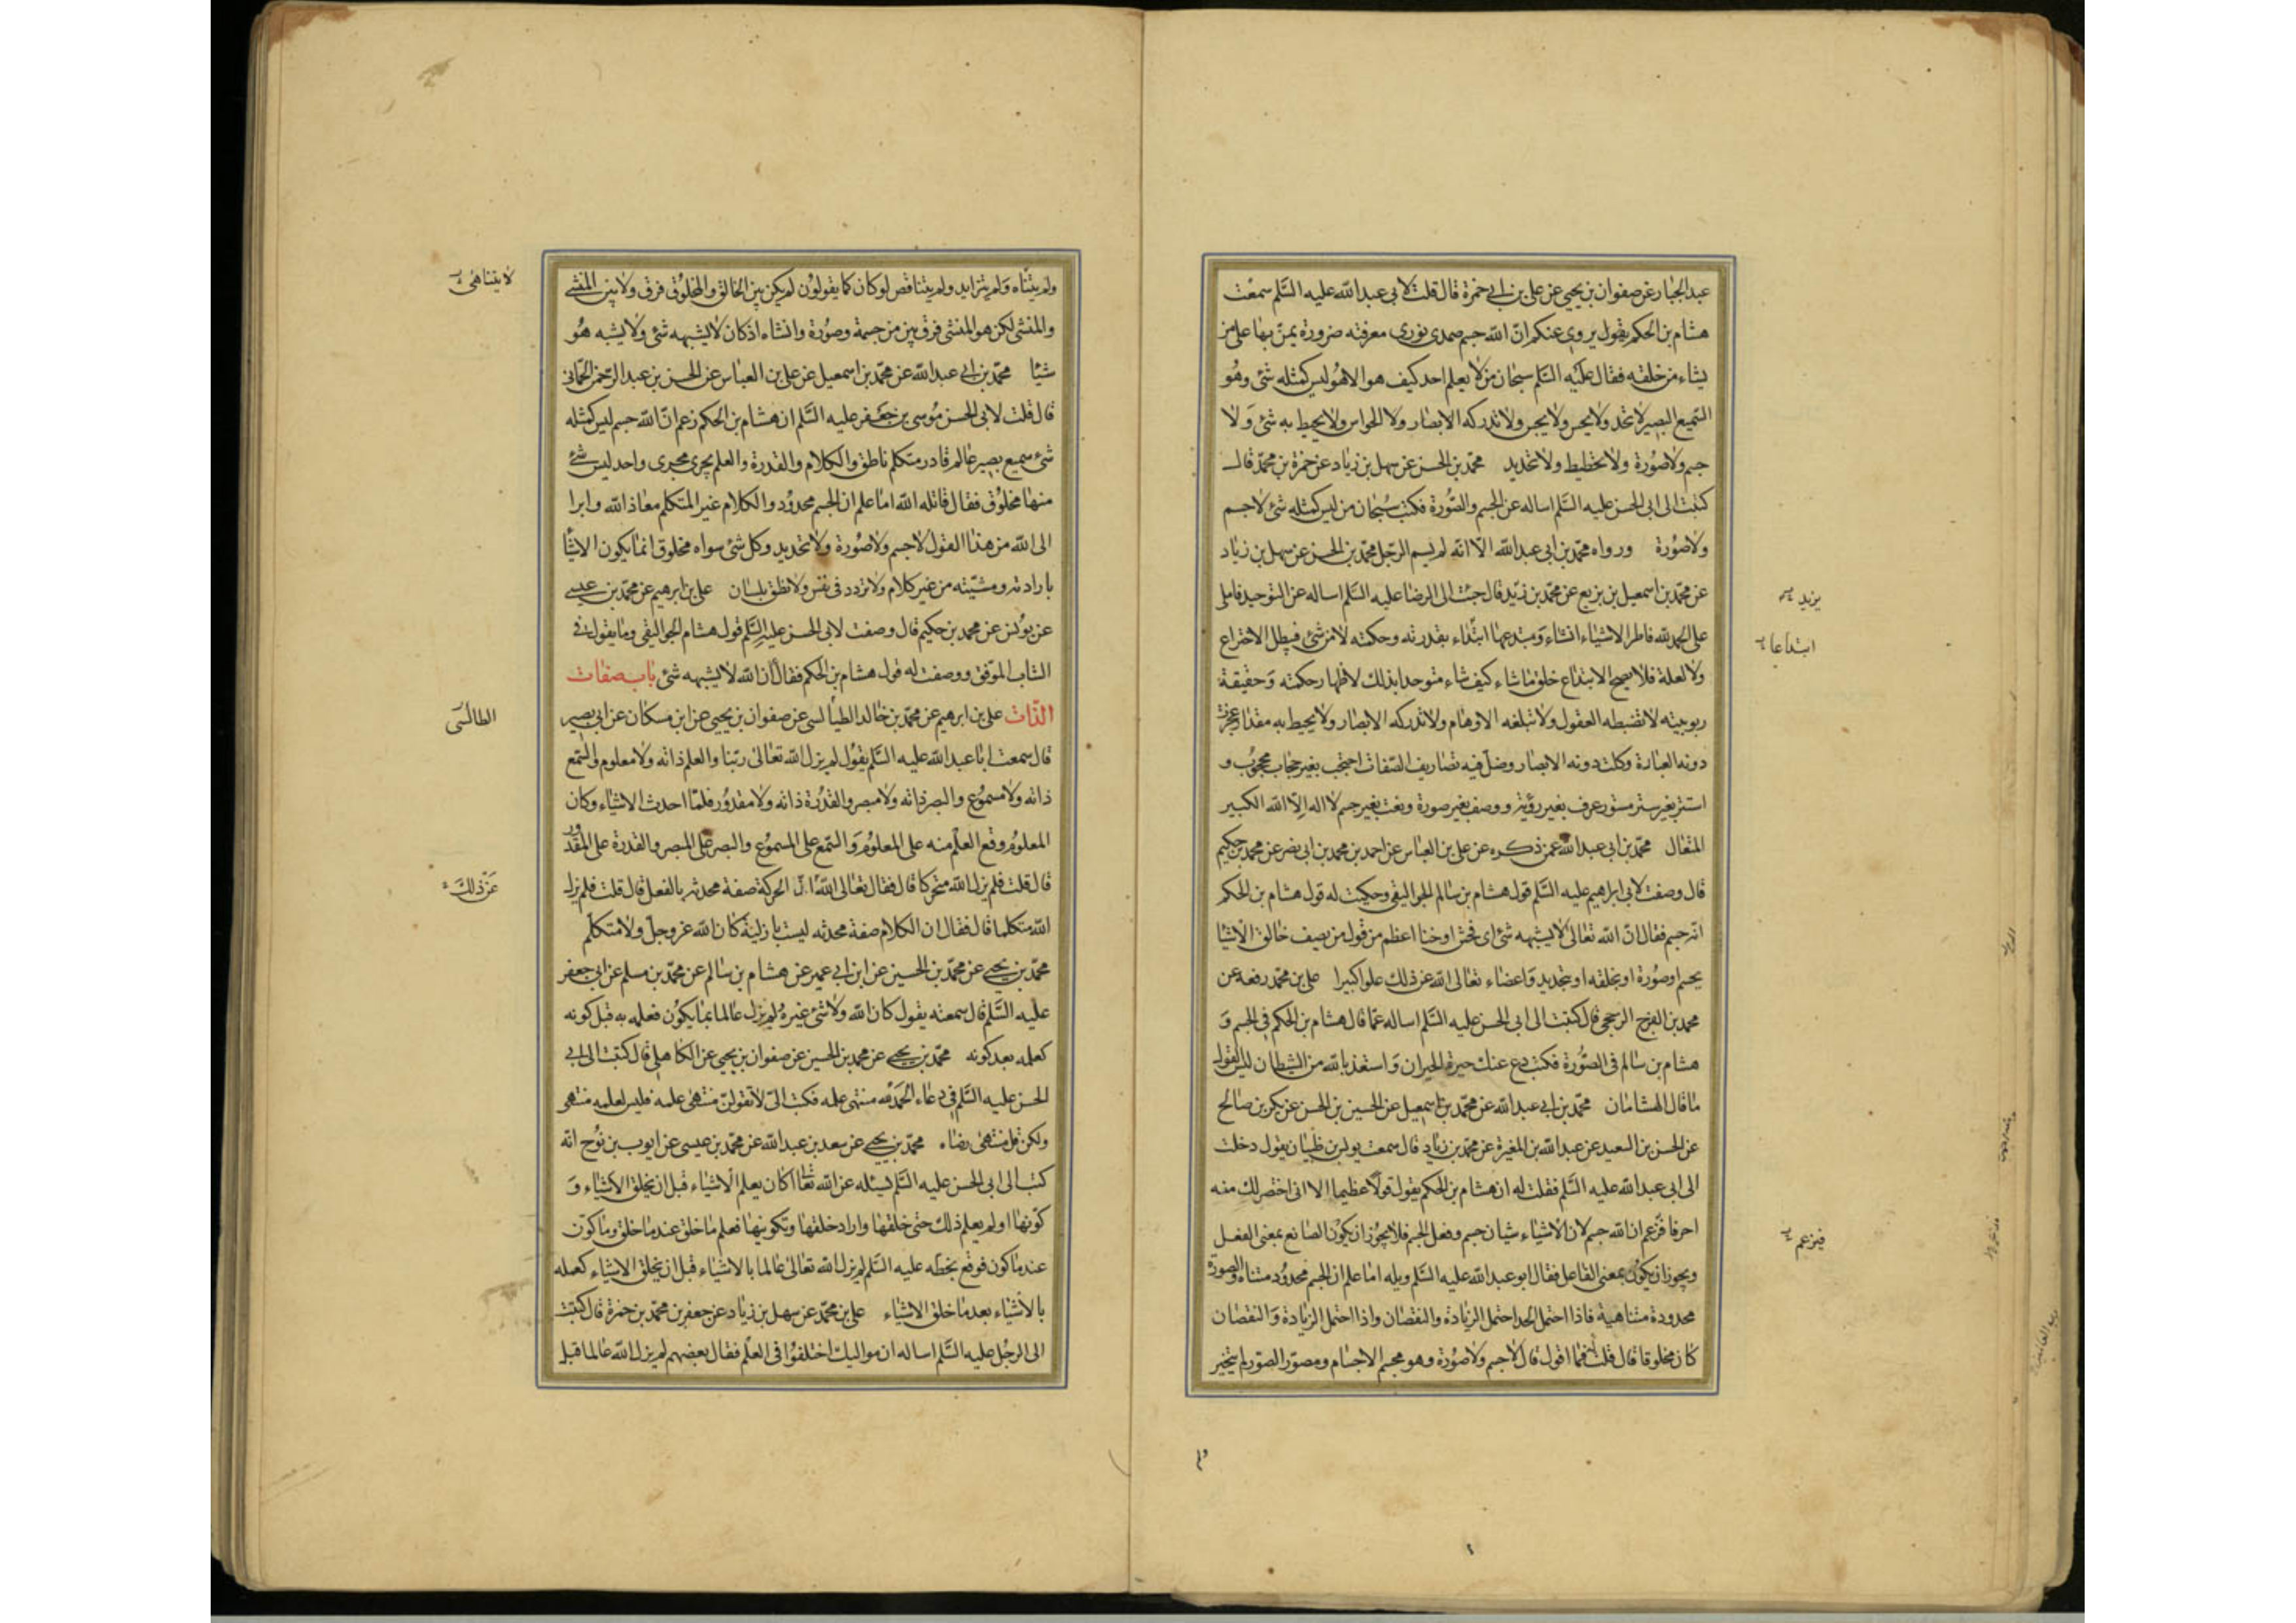 عبد الجبار عن صفوان بن يحيى عن على بن ابى حمزة قال قلت لابى عبد الله عليه السلم سمعت
هشام بن الحكم يقول يروى عنكم ان الله جسم صمدى نورى معرفته ضرورة يمن بها على من
يشاء من خلقه فقال عليه السلم سبحان من لا يعلم احد كيف هو الا هو ليس كمثله شئ وهو
السميع البصير لا تحد ولا يحس ولا يجس ولا تدركه الابصار ولا الحواس ولا يحيط به شئ ولا
جسم ولا صورة ولا تخطيط ولا تحديد محمد بن الحسن عن سهل بن زياد عن حمزة بن محمد قال
كتبت الى ابى الحسن عليه السلم اساله عن الجسم والصورة فكتب سبحان من ليس كمثله شئ لا جسم
ولا صورة ورواه محمد بن ابى عبد الله الا انه لم يسم الرجل محمد بن الحسن عن سهل بن زياد
عن محمد بن اسمعيل بن بزيع عن محمد بن زيد قال جئت الى الرضا عليه السلم اساله عن التوحيد فاملى
يزيد
على الحمد لله فاطر الاشياء انشاء ومبتدعها ابتداء بقدرته وحكمته لا من شئ فيبطل الاختراع
ابتداعا
ولا لعلة فلا يصح الابتداع خلق ما شاء كيف شاء متوحدا بذلك لاظهار حكمته وحقيقة
ربوبيته لا تضبطه العقول ولا تبلغه الاوهام ولا تدركه الابصار ولا يحيط به مقدار عجزت
دونه العبارة وكلت دونه الابصار وضل فيه تصاريف الصفات احتجب بغير حجاب محجوب و
استتر بغير ستر مستور عرف بغير رؤية ووصف بغير صورة ونعت بغير جسم لا اله الا الله الكبير
المتعال محمد بن ابى عبد الله عمن ذكره عن على بن العباس عن احمد بن محمد بن ابى نصر عن محمد بن حكيم
قال وصفت لابى ابراهيم عليه السلم قول هشام بن سالم الجواليقى وحكيت له قول هشام بن الحكم
انه جسم فقال ان الله تعالى لا يشبهه شئ اى فحش او خنا اعظم من قول من يصف خالق الاشيا
بجسم او صورة او بخلقه او بتحديد واعضاء تعالى الله عن ذلك علوا كبيرا على بن محمد رفعه عن
محمد بن الفرج الرخجى قال كتبت الى ابى الحسن عليه السلم اساله عما قال هشام بن الحكم فى الجسم و
هشام بن سالم فى الصورة فكتب دع عنك حيرة الحيران واستعذ بالله من الشيطان ليس القول
ما قال الهشامان محمد بن ابى عبد الله عن محمد بن اسمعيل عن الحسين بن الحسن عن بكر بن صالح
عن الحسن بن السعيد عن عبد الله بن المغيرة عن محمد بن زياد قال سمعت يونس بن ظبيان يقول دخلت
الى ابى عبد الله عليه السلم فقلت له ان هشام بن الحكم يقول قولا عظيما الا انى اختصر لك منه
احرفا فزعم ان الله جسم لان الاشياء شيئان جسم وفعل الجسم فلا يجوز ان يكون الصانع بمعنى الفعل
فيزعم
ويجوز ان يكون بمعنى الفاعل فقال ابو عبد الله عليه السلم ويله اما علم ان الجسم محدود متناه والصورة
محدودة متناهية فاذا احتمل الحد احتمل الزيادة والنقصان واذا احتمل الزيادة والنقصان
كان مخلوقا قال قلت فما اقول قال لا جسم ولا صورة وهو مجسم الاجسام ومصور الصور لم يتجز
ولم يتناه ولم يتزايد ولم يتناقص لو كان كما يقولون لم يكن بين الخالق والمخلوق فرق ولا بين المنشى
لا يتناهى
والمنشئ لكن هو المنشئ فرق بين من جسمه وصوره وانشاه اذ كان لا يشبهه شئ ولا يشبه هو
شيئا محمد بن ابى عبد الله عن محمد بن اسمعيل عن على بن العباس عن الحسن بن عبد الرحمن الحمانى
قال قلت لابى الحسن موسى بن جعفر عليه السلم ان هشام بن الحكم زعم ان الله جسم ليس كمثله
شئ سميع بصير عالم قادر متكلم ناطق والكلام والقدرة والعلم يجرى مجرى واحد ليس شئ
منها مخلوق فقال قاتله الله اما علم ان الجسم محدود والكلام غير المتكلم معاذ الله وابرا
الى الله من هذا القول لا جسم ولا صورة ولا تحديد وكل شئ سواه مخلوق انما يكون الاشيا
بارادته ومشيته من غير كلام ولا تردد فى نفس ولا نطق بلسان على بن ابرهيم عن محمد بن عيسى
عن يونس عن محمد بن حكيم قال وصفت لابى الحسن عليه السلم قول هشام الجواليقى وما يقول فى
الشاب الموفق ووصفت له قول هشام بن الحكم فقال ان الله لا يشبهه شئ باب صفات
الذات على بن ابرهيم عن محمد بن خالد الطيالسى عن صفوان بن يحيى عن ابن مسكان عن ابى بصير
الطالسى
قال سمعت ابا عبد الله عليه السلم يقول لم يزل الله تعالى ربنا والعلم ذاته ولا معلوم والسمع
ذاته ولا مسموع والبصر ذاته ولا مبصر والقدرة ذاته ولا مقدور فلما احدث الاشياء وكان
المعلوم وقع العلم منه على المعلوم والسمع على المسموع والبصر على المبصر والقدرة على المقدور
قال قلت فلم يزل الله متحركا قال فقال تعالى الله ان الحركة صفة محدثه بالفعل قال قلت فلم يزل
عن ذلك
الله متكلما قال فقال ان الكلام صفة محدثه ليست بازلية كان الله عز وجل ولا متكلم
محمد بن يحيى عن محمد بن الحسين عن ابن ابى عمير عن هشام بن سالم عن محمد بن مسلم عن ابى جعفر
عليه السلم قال سمعته يقول كان الله ولا شئ غيره لم يزل عالما بما يكون فعلمه به قبل كونه
كعلمه بعد كونه محمد بن يحيى عن محمد بن الحسين عن صفوان بن يحيى عن الكاهلى قال كتبت الى ابى
الحسن عليه السلم فى دعاء الحمد لله منتهى علمه فكتب الى لا تقولن منتهى علمه فليس لعلمه منتهى
ولكن قل منتهى رضاه محمد بن يحيى عن سعد بن عبد الله عن محمد بن عيسى عن ايوب بن نوح انه
كتب الى ابى الحسن عليه السلم يسئله عن الله تعالى اكان يعلم الاشياء قبل ان يخلق الاشياء و
كونها اولم يعلم ذلك حتى خلقها واراد خلقها وتكوينها فعلم ما خلق عند ما خلق وما كون
عند ما كون فوقع بخطه عليه السلم لم يزل الله تعالى عالما بالاشياء قبل ان يخلق الاشياء كعمله
بالاشياء بعد ما خلق الاشياء على بن محمد عن سهل بن زياد عن جعفر بن محمد بن حمزة قال كتبت
الى الرجل عليه السلم اساله ان مواليك اختلفوا فى العلم فقال بعضهم لم يزل الله عالما قبل